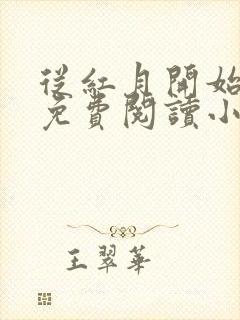 從紅月開始
免費閱讀小
王翠華